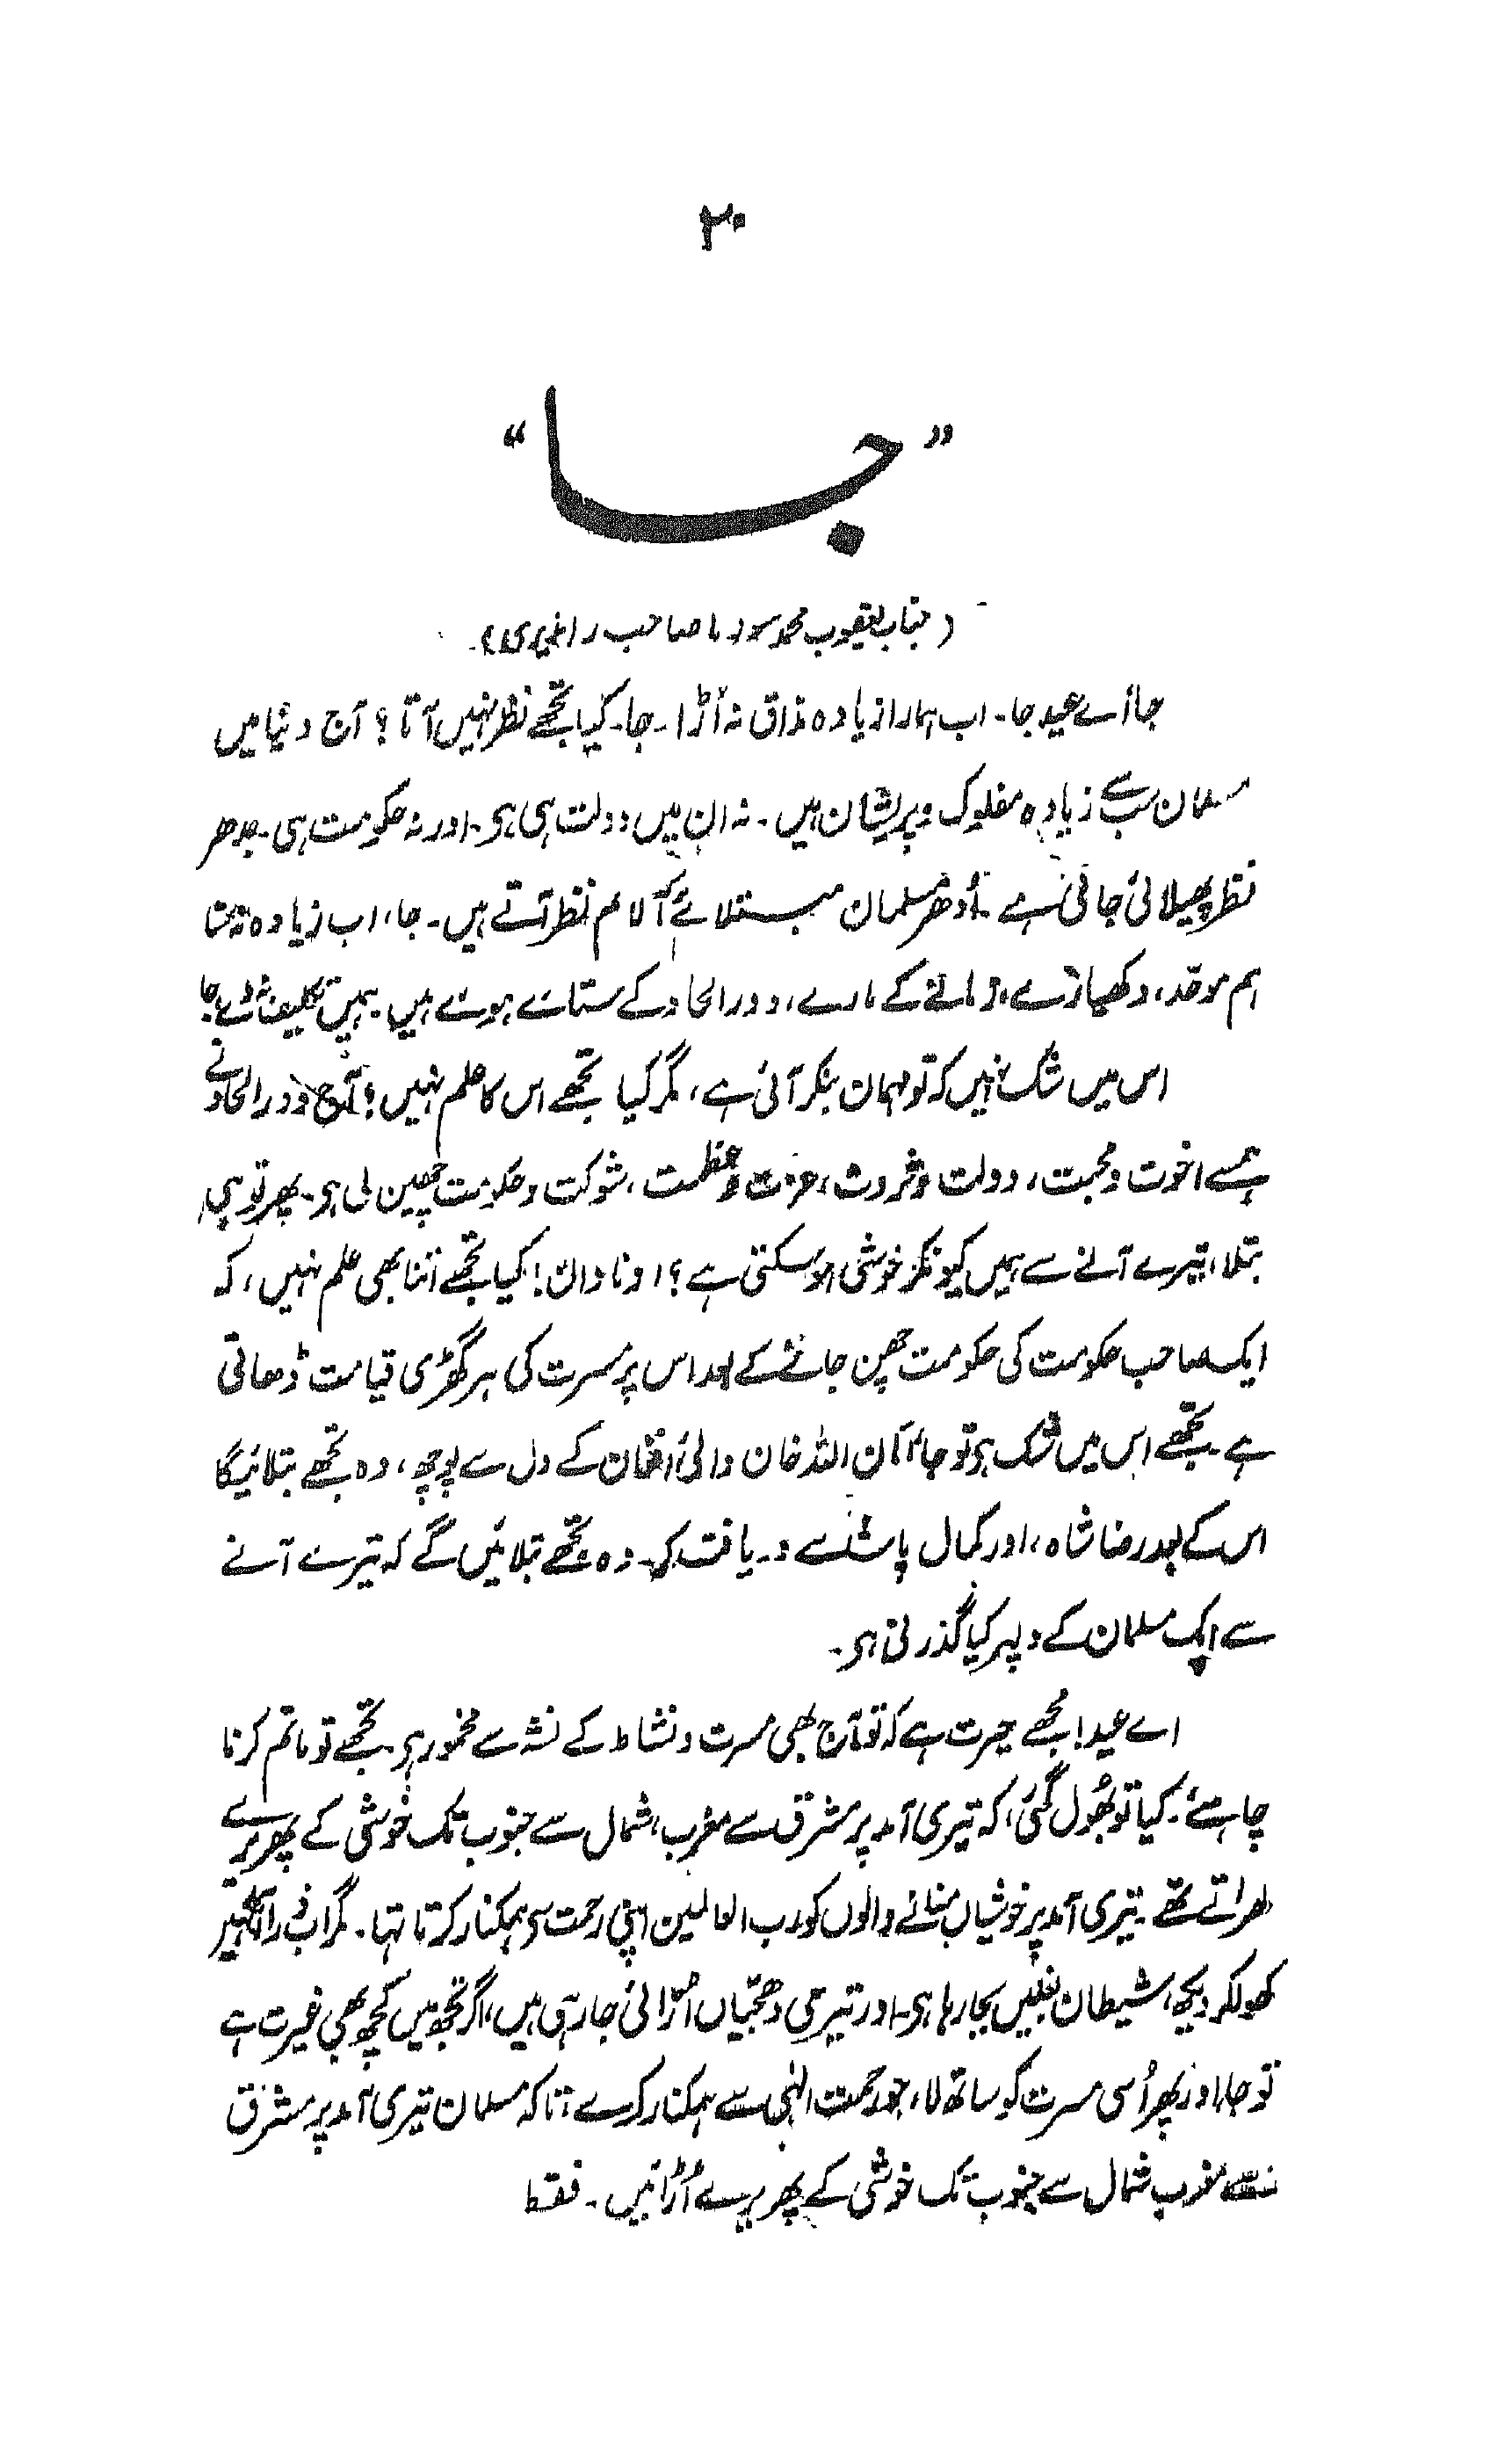 ۲۰
”جا“
(جناب یعقوب محمد صاحب راندیری)
جا اے عید جا۔ اب ہمارا زیادہ مذاق نہ اُڑا۔ جا۔ کیا تجھے نظر نہیں آتا؟ آج دنیا میں
مسلمان سب سے زیادہ مفلوک و پریشان ہیں۔ نہ ان میں دولت ہی ہی۔ اور نہ حکومت ہی۔ جدھر
نظر پھیلائی جاتی ہے۔ اُدھر مسلمان مبتلائے آلام نظر آتے ہیں۔ جا، اب زیادہ نہ ستا
ہم موحّد، دکھیارے، زمانے کے مارے، دور الحاد کے ستائے ہوئے ہیں۔ ہمیں تکلیف نہ دے جا
اس میں شک نہیں کہ تو مہمان بنکر آئی ہے، مگر کیا تجھے اس کا علم نہیں؟ آج دور الحاد نے
ہمسے اخوت و محبت، دولت و ثروت، عزت و عظمت، شوکت و حکومت چھین لی ہی۔ پھر تو ہی
بتلا، تیرے آنے سے ہمیں کیونکر خوشی ہو سکتی ہے؟ او نادان! کیا تجھے اتنا بھی علم نہیں، کہ
ایک صاحب حکومت کی حکومت چھن جانے کے بعد اس پر مسرت کی ہر گھڑی قیامت ڈھاتی
ہے۔ تجھے اس میں شک ہو تو جا، امان اللہ خان والیٔ افغان کے دل سے پوچھ، وہ تجھے بتلائیگا
اس کے بعد رضا شاہ، اور کمال پاشا سے دریافت کر۔ وہ تجھے بتلائیں گے کہ تیرے آنے
سے ایک مسلمان کے دلپر کیا گذرتی ہی۔
اے عید! مجھے حیرت ہے کہ تو آج بھی مسرت و نشاط کے نشہ سے مخمور ہی۔ تجھے تو ماتم کرنا
چاہئے۔ کیا تو بھُول گئی، کہ تیری آمد پر مشرق سے مغرب، شمال سے جنوب تک خوشی کے پھریرے
لہراتے تھے۔ تیری آمد پر خوشیاں منانے والوں کو رب العالمین اپنی رحمت سی ہمکنار کرتا تہا۔ مگر اب ذرا آنکھیں
کھولکر دیکھ، شیطان بغلیں بجا رہا ہی۔ اور تیری دھجیاں اُڑائی جا رہی ہیں، اگر تجھ میں کچھ بھی غیرت ہے
تو جا، اور پھر اُسی مسرت کو ساتھ لا، جو رحمت الہٰی سے ہمکنار کرے، تاکہ مسلمان تیری آمد پر مشرق
سے مغرب شمال سے جنوب تک خوشی کے پھریرے اُڑائیں۔ فقط